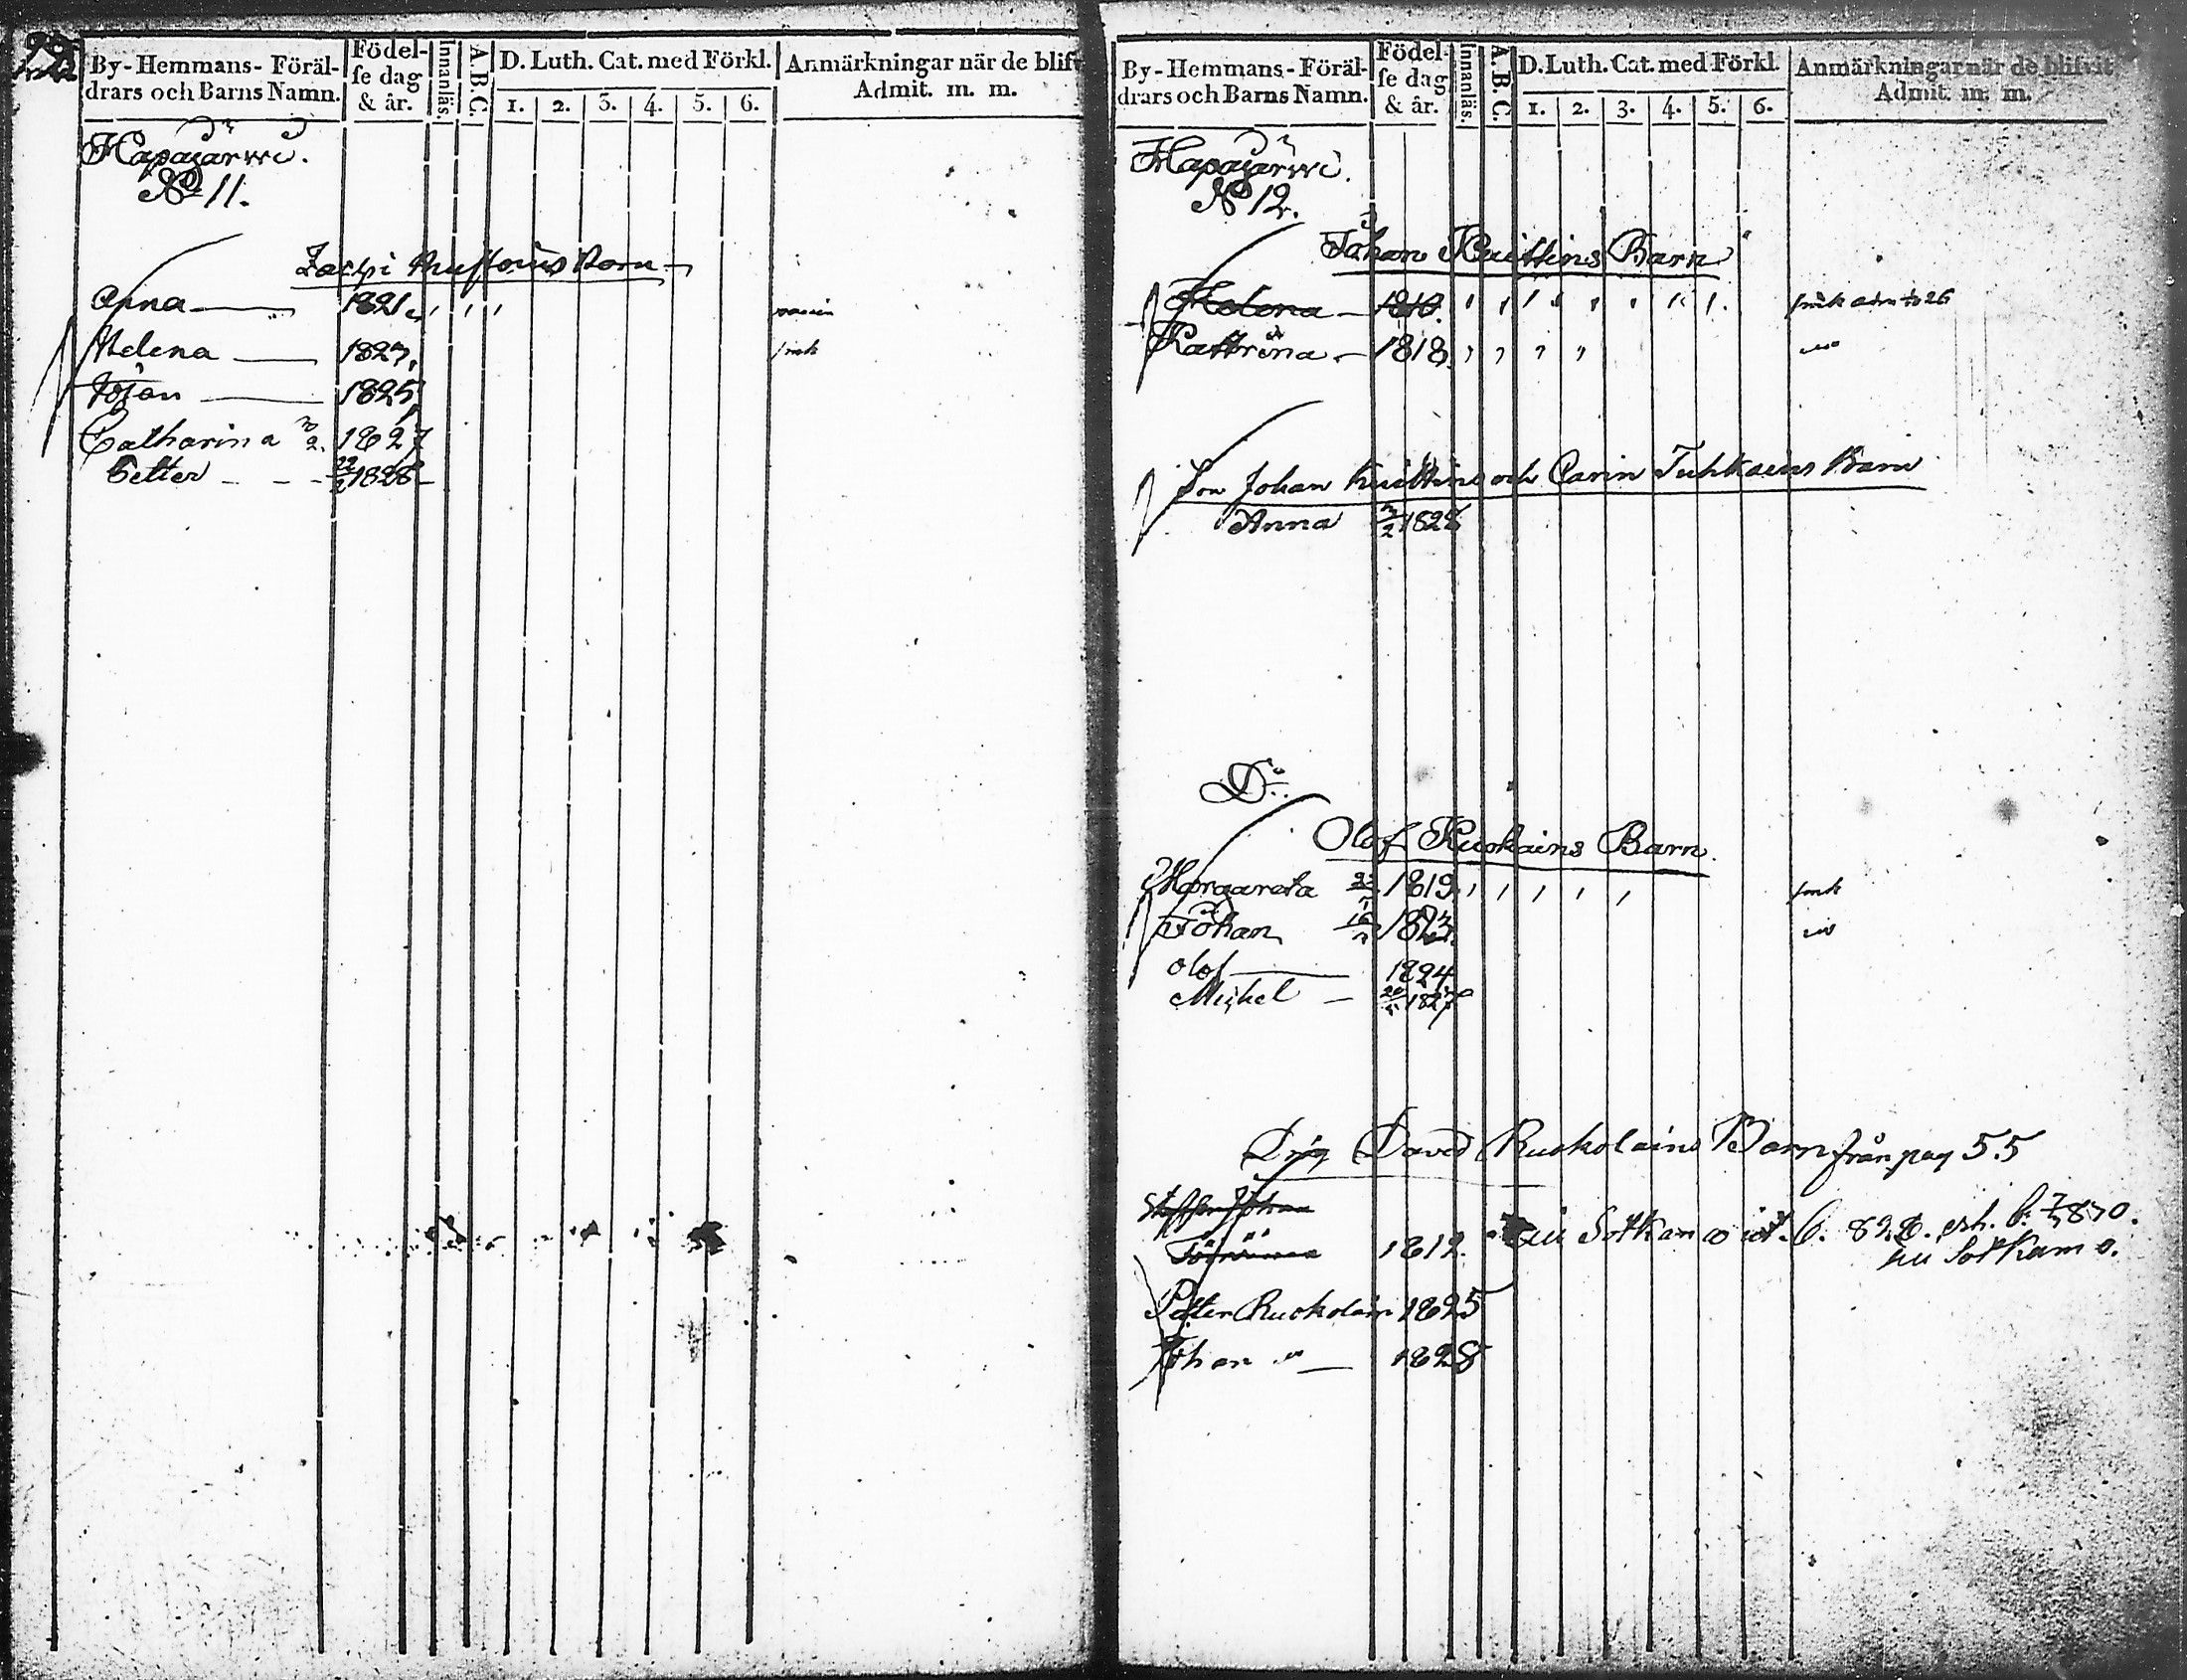 By-Hemmans-Föräl-
drars och Barns Namn.
Födel-
se dag
& år.
Innanläs.
A.B.C.
D. Luth. Cat. med Förkl.
1. 2. 3. 4. 5. 6.
Anmärkningar när de blif
Admit. m. m.
Hapajärwi.
No 11.
Barn
Anna 1821
Helena 1823
Johan 1825
Catharina 1827
Petter 1828
By-Hemmans-Föräl-
drars och Barns Namn.
Födel-
se dag
& år.
Innanläs.
A.B.C.
D. Luth. Cat. med Förkl.
1. 2. 3. 4. 5. 6.
Anmärkningar när de blifvit
Admit. m. m.
Hapajärwi.
No 12.
Johan Kuittins Barn
Helena 1810.
Kattrina 1818
Son Johan Kuittins och Carin Tuhkains Barn
Anna 1828
Do.
Olof Ruokains Barn
Margareta 1819
Johan 1823
Olof 1824
Michel 1827
David Ruokolains Barn från pag 55
1812.
Sotkamo
Sotkamo.
Petter Ruokolain 1825
Johan " 1828